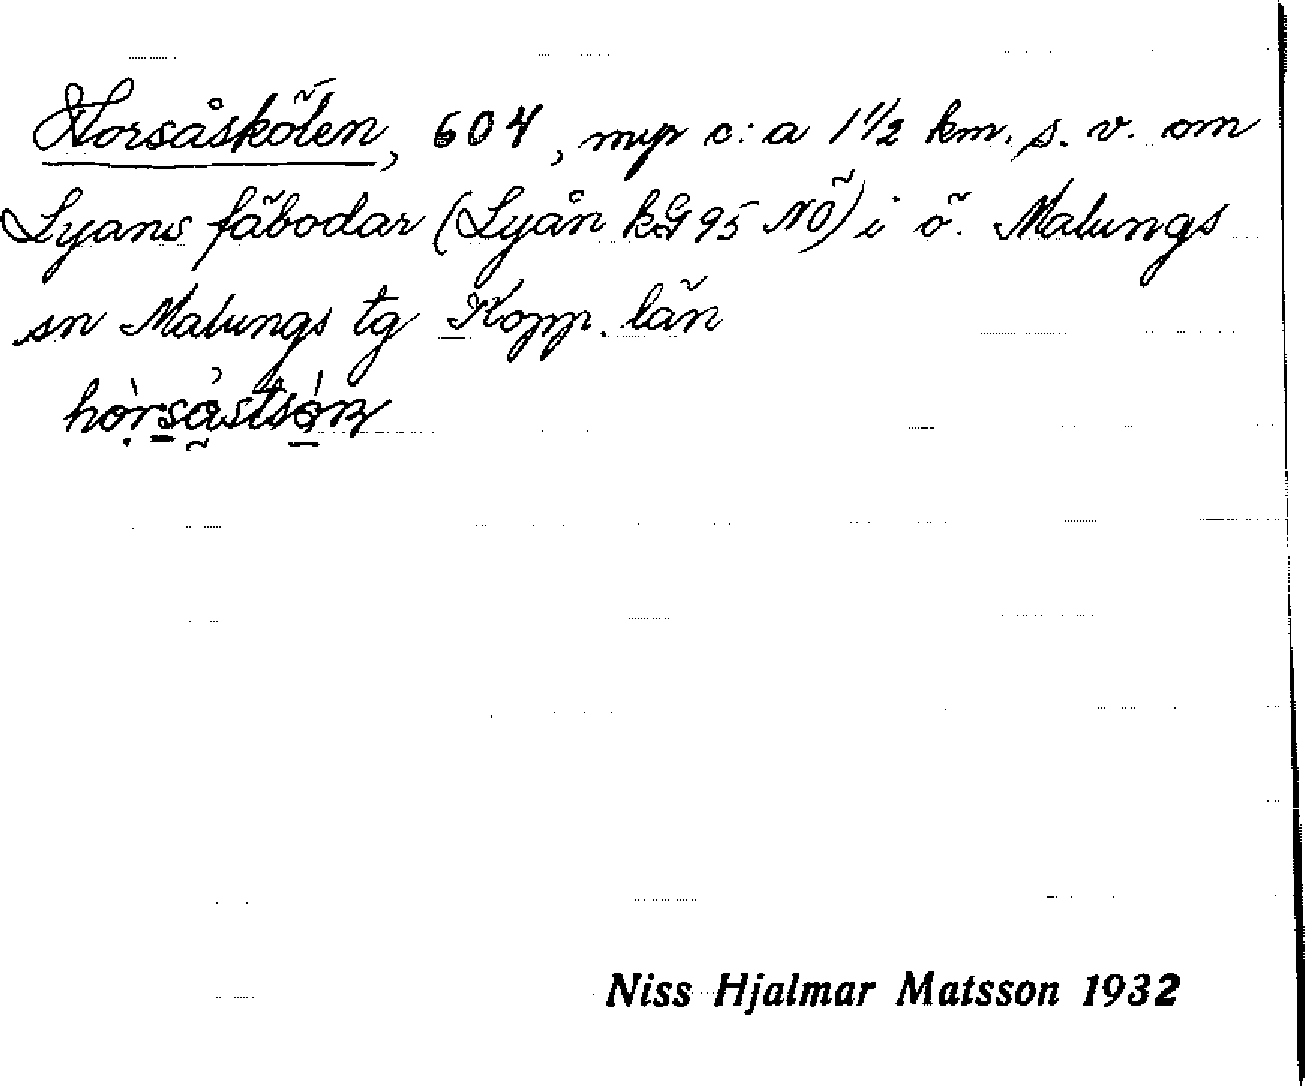 Horsåskölen, 604, myr c:a 1 1/2 km. s. v. om
Lyans fäbodar (Lyån kG 95 NÖ) i ö. Malungs
sn Malungs tg Kopp. län
Niss Hjalmar Matsson 1932